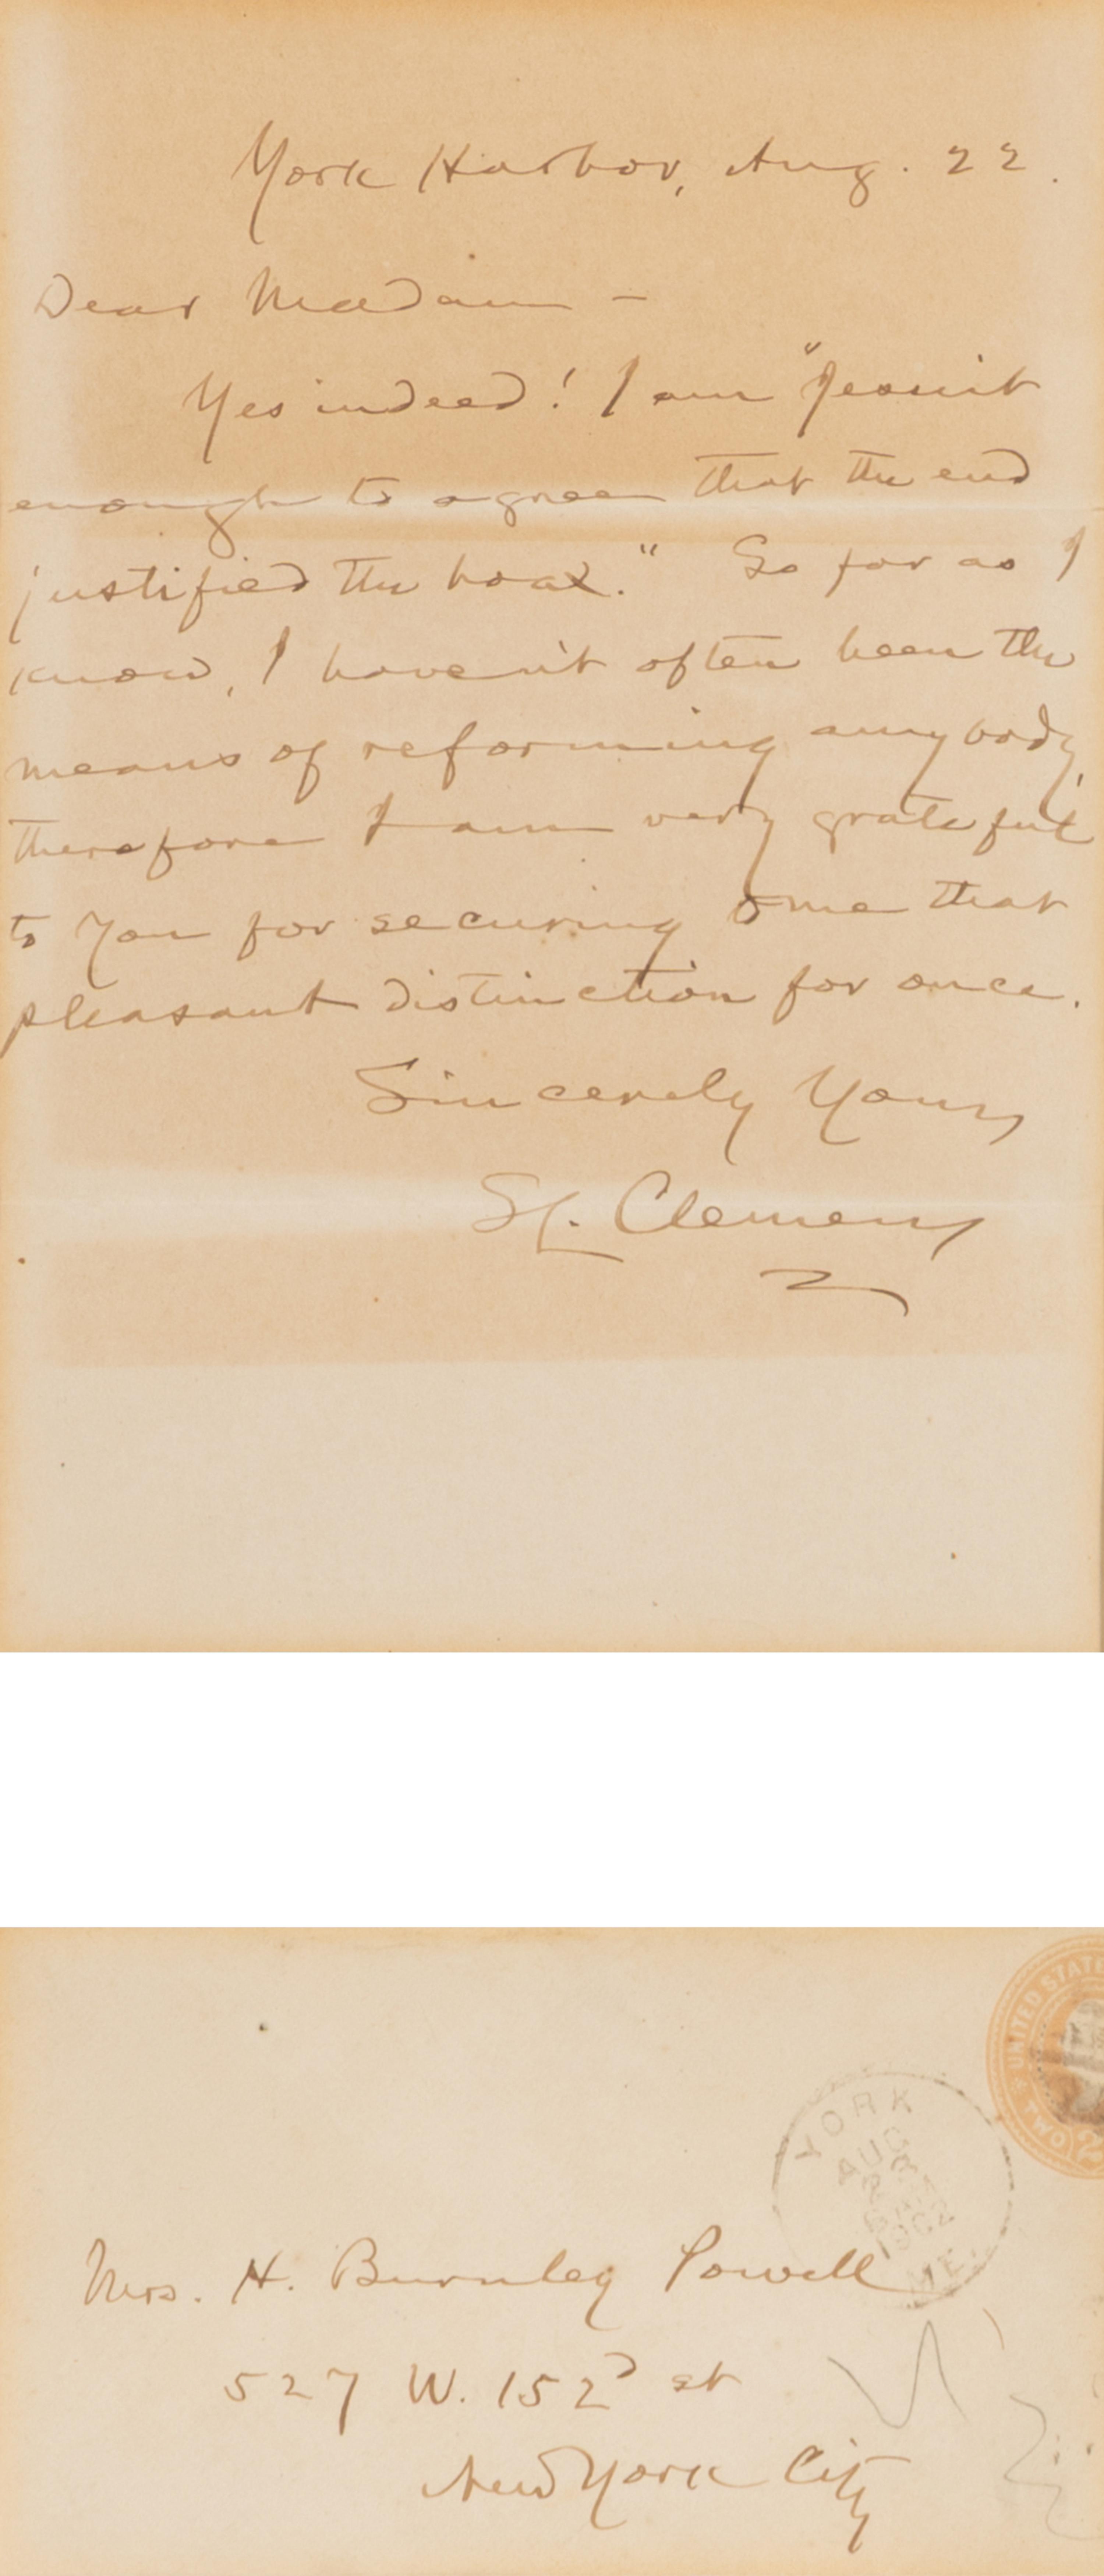 York Harbor, Aug. 22.
Dear Madam —
Yes indeed! I am "Jesuit
enough to agree that the end
justified the hoax." So far as I
know, I haven't often been the
means of reforming anybody,
therefore I am very grateful
to you for securing to me that
pleasant distinction for once.
Sincerely Yours
SL. Clemens
UNITED STATE
TWO 2
YORK
AUG
22
1902
ME.
Mrs. H. Burnley Powell
527 W. 152d st
New York City